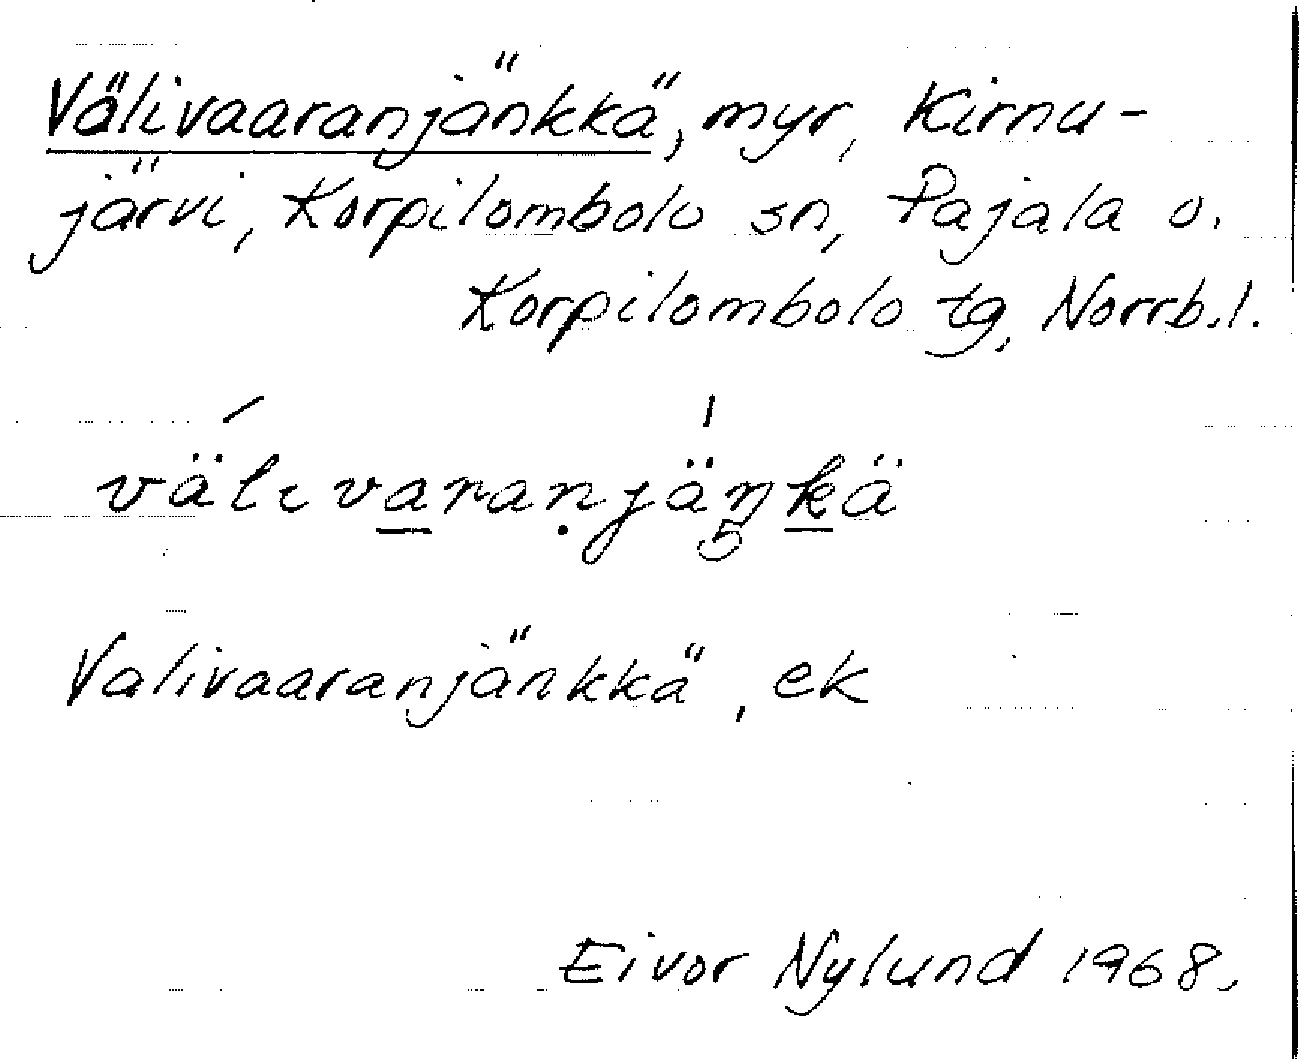 Välivaaranjänkkä, myr, Kirnu-
järvi, Korpilombolo sn, Pajala o.
Korpilombolo tg, Norrb.l.
välivaranjäŋkä
Valivaaranjänkkä, ek
Eivor Nylund 1968.